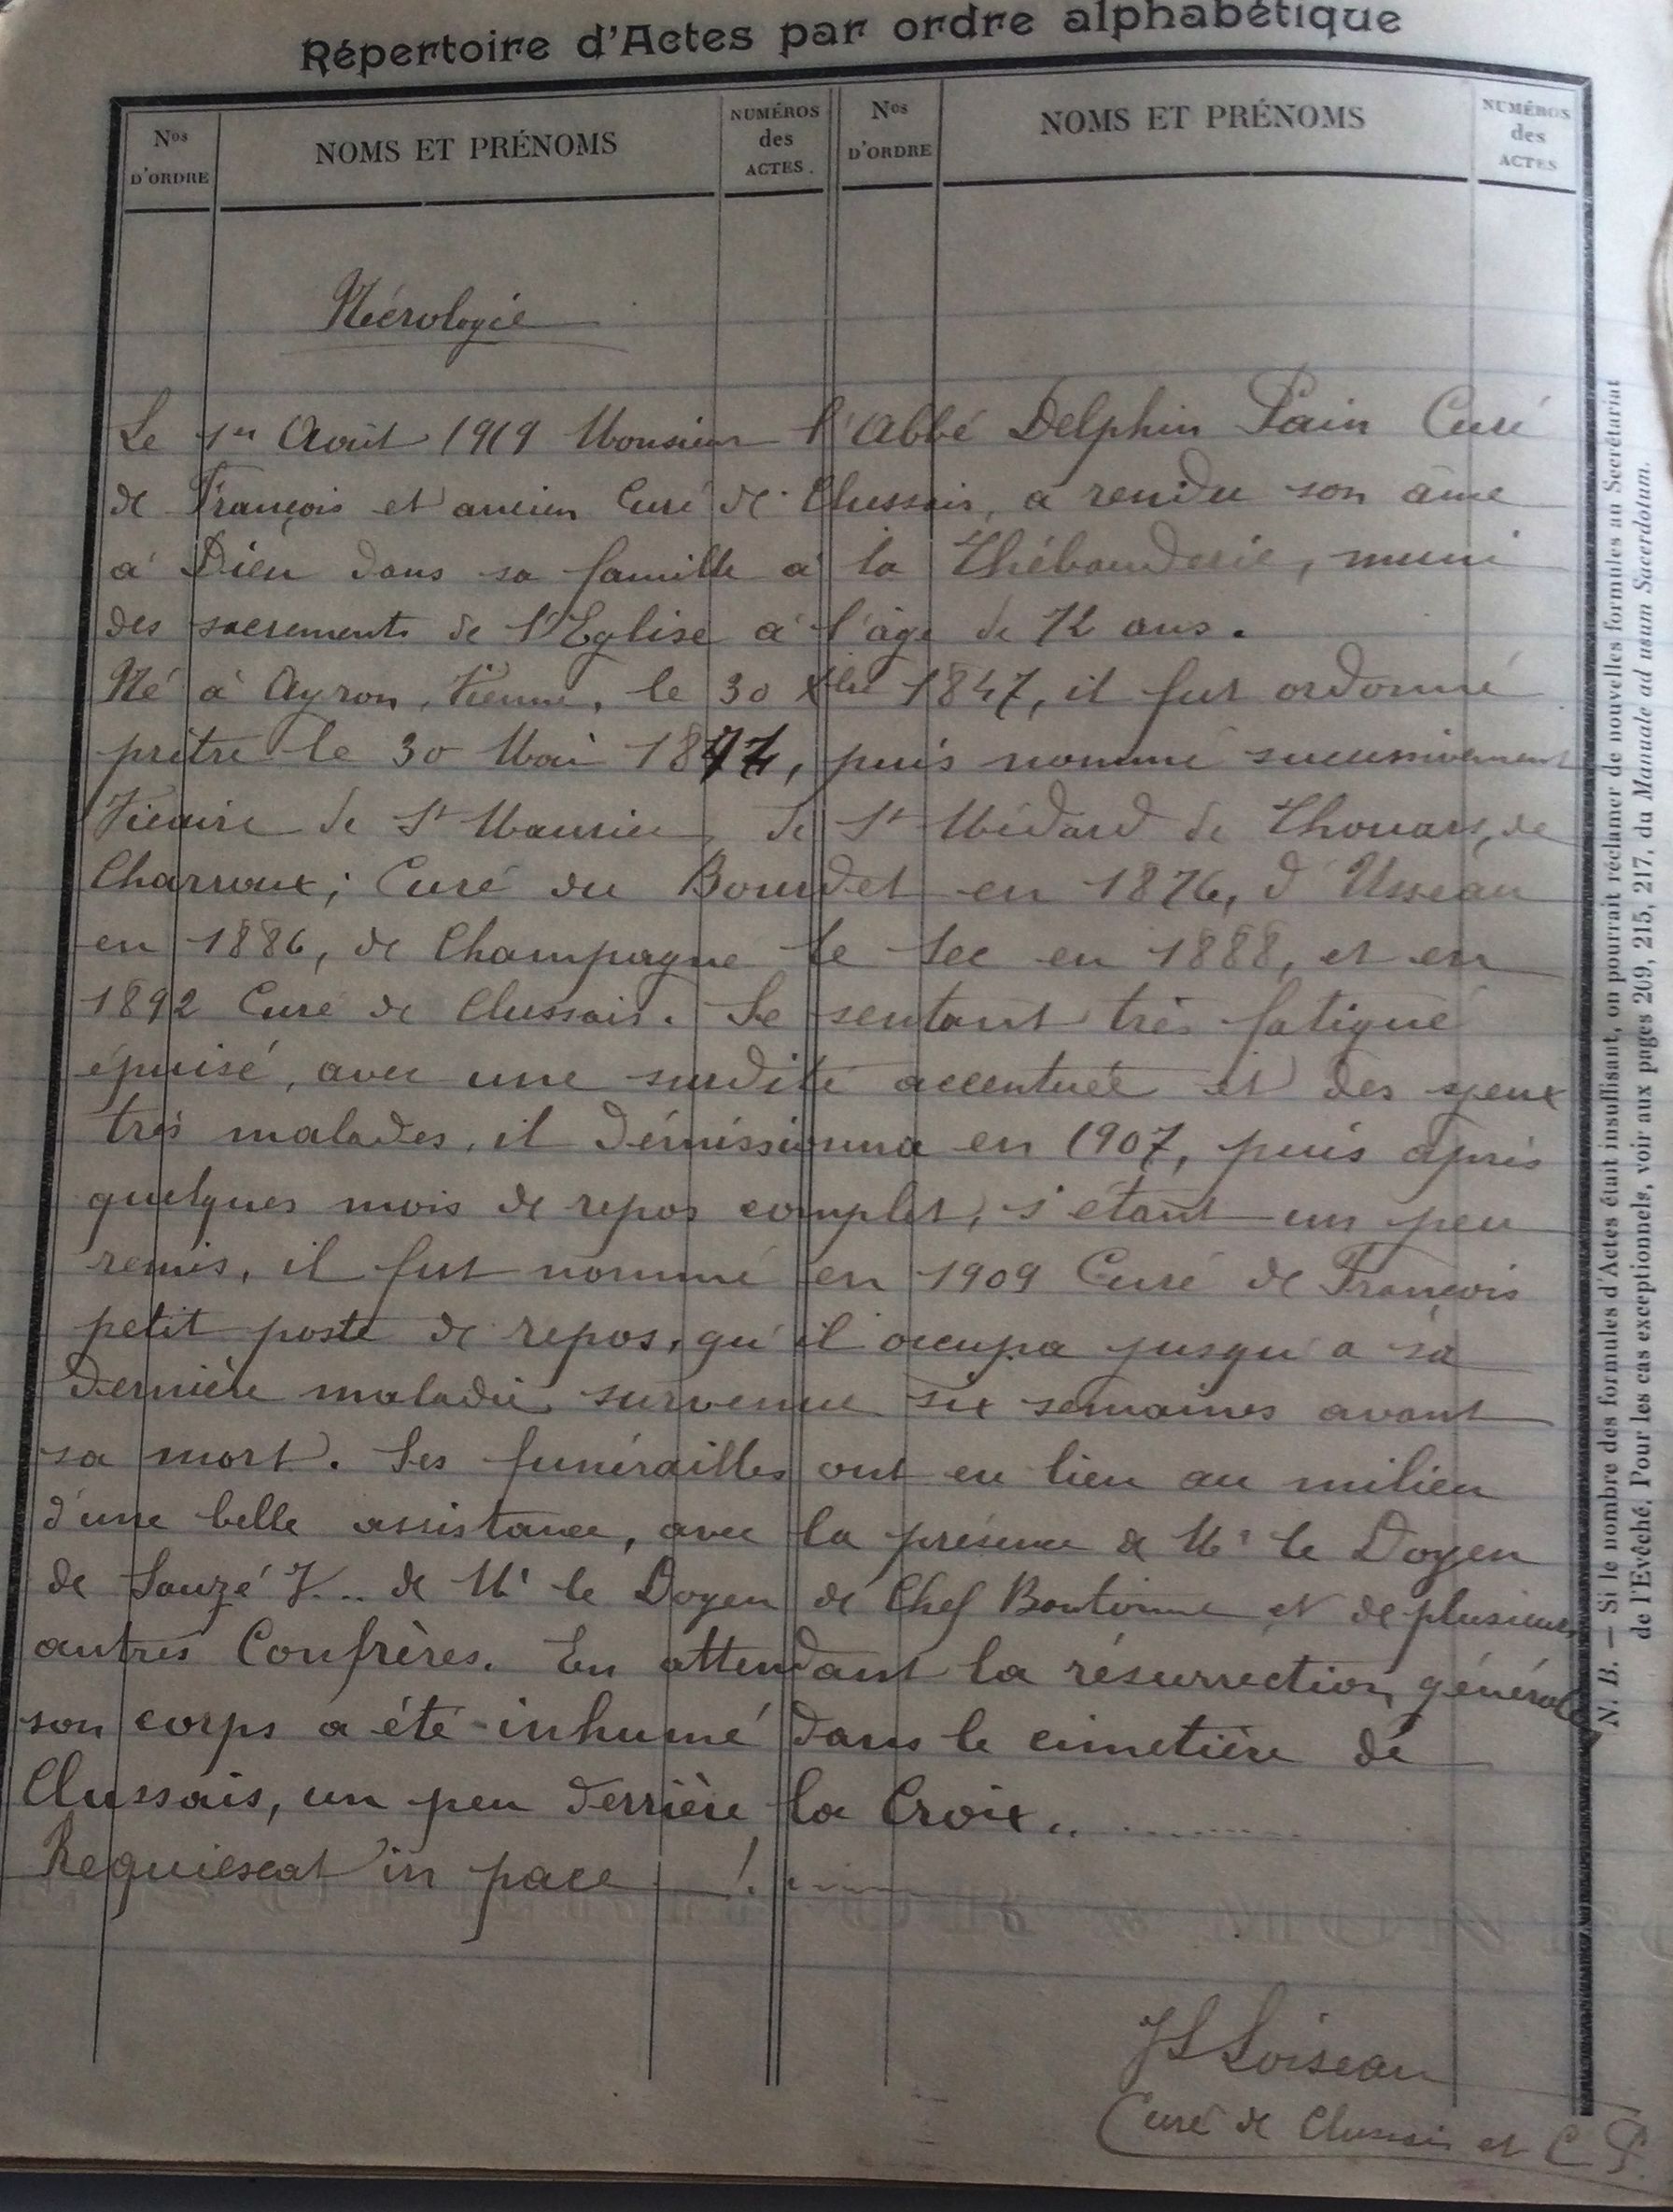 Répertoire d'Actes par ordre alphabétique
Nos D'ORDRE
NOMS ET PRÉNOMS
NUMÉROS des ACTES.
Nos D'ORDRE
NOMS ET PRÉNOMS
NUMÉROS des ACTES
Nécrologie
Le 1er Août 1919 Monsieur l'Abbé Delphin Pain Curé
de François et ancien Curé de Clussais, a rendu son âme
à Dieu dans sa famille à la Thébauderie, muni
des sacrements de l'Eglise à l'âge de 72 ans.
Né à Ayron, Vienne, le 30 Xbre 1847, il fut ordonné
prêtre le 30 Mai 1874, puis nommé successivement
Vicaire de St Maurice, de St Médard de Thouars, de
Charroux; Curé du Bourdet en 1876, d'Usseau
en 1886, de Champagne le Sec en 1888, et en
1892 Curé de Clussais. Se sentant très fatigué
épuisé, avec une surdité accentuée et des yeux
très malades, il démissionna en 1907, puis après
quelques mois de repos complet, s'étant un peu
remis, il fut nommé en 1909 Curé de François
petit poste de repos, qu'il occupa jusqu'a sa
dernière maladie, survenue six semaines avant
sa mort. Ses funérailles ont eu lieu au milieu
d'une belle assistance, avec la présence de Mr le Doyen
de Sauzé V... de Mr le Doyen de Chef Boutonne et de plusieurs
autres Confrères. En attendant la résurrection générale,
son corps a été inhumé dans le cimetière de
Clussais, un peu derrière la Croix..
Requiescat in pace !.
JL Loiseau
Curé de Clussais et C P.
N. B. — Si le nombre des formules d'Actes était insuffisant, on pourrait réclamer de nouvelles formules au Secrétariat
de l'Evêché. Pour les cas exceptionnels, voir aux pages 209, 215, 217, du Manuale ad usum Sacerdotum.